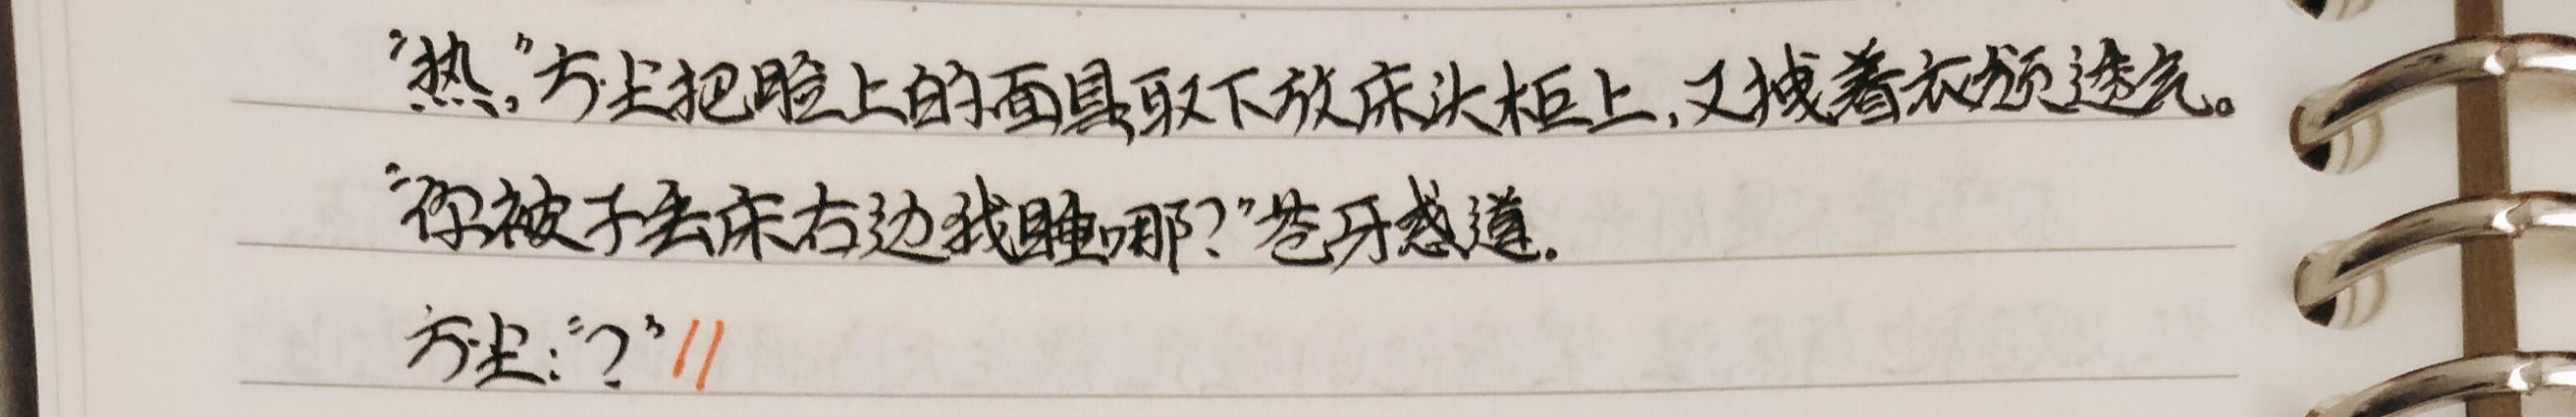 “热,”方尘把脸上的面具取下放床头柜上,又拽着衣领透气。
“你被子丢床右边我睡哪?”苍牙惑道.
方尘:“?”//